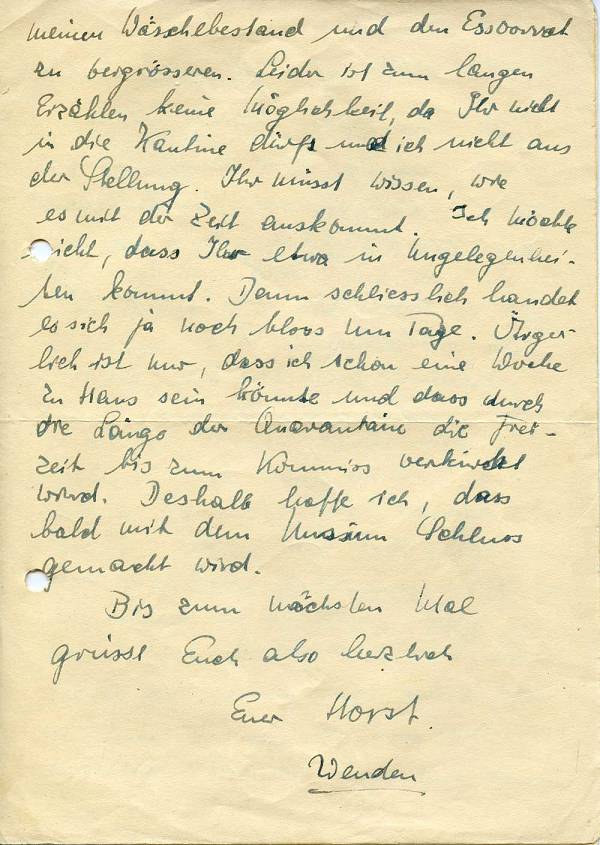 meinen Wäschebestand und den Essvorrat
zu vergrösseren. Leider ist zum langen
Erzählen keine Möglichkeit, da Ihr nicht
in die Kantine dürft und ich nicht aus
der Stellung. Ihr müsst wissen, wie
es mit der Zeit auskommt. Ich möchte
nicht, dass Ihr etwa in Ungelegenhei-
ten kommt. Denn schliesslich handelt
es sich ja noch bloss um Tage. Ärger-
lich ist nur, dass ich schon eine Woche
zu Haus sein könnte und dass durch
die Länge der Quarantäne die Frei-
zeit bis zum Kommiss verkürzt
wird. Deshalb hoffe ich, dass
bald mit dem Unsinn Schluss
gemacht wird.
Bis zum nächsten Mal
grüsst Euch also herzlich
Euer Horst.
Wenden